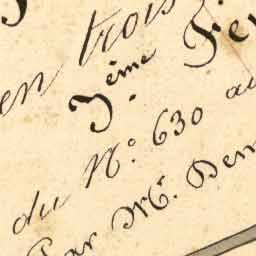 en trois
3ème Fe
du No. 630 au
Par M. Dem